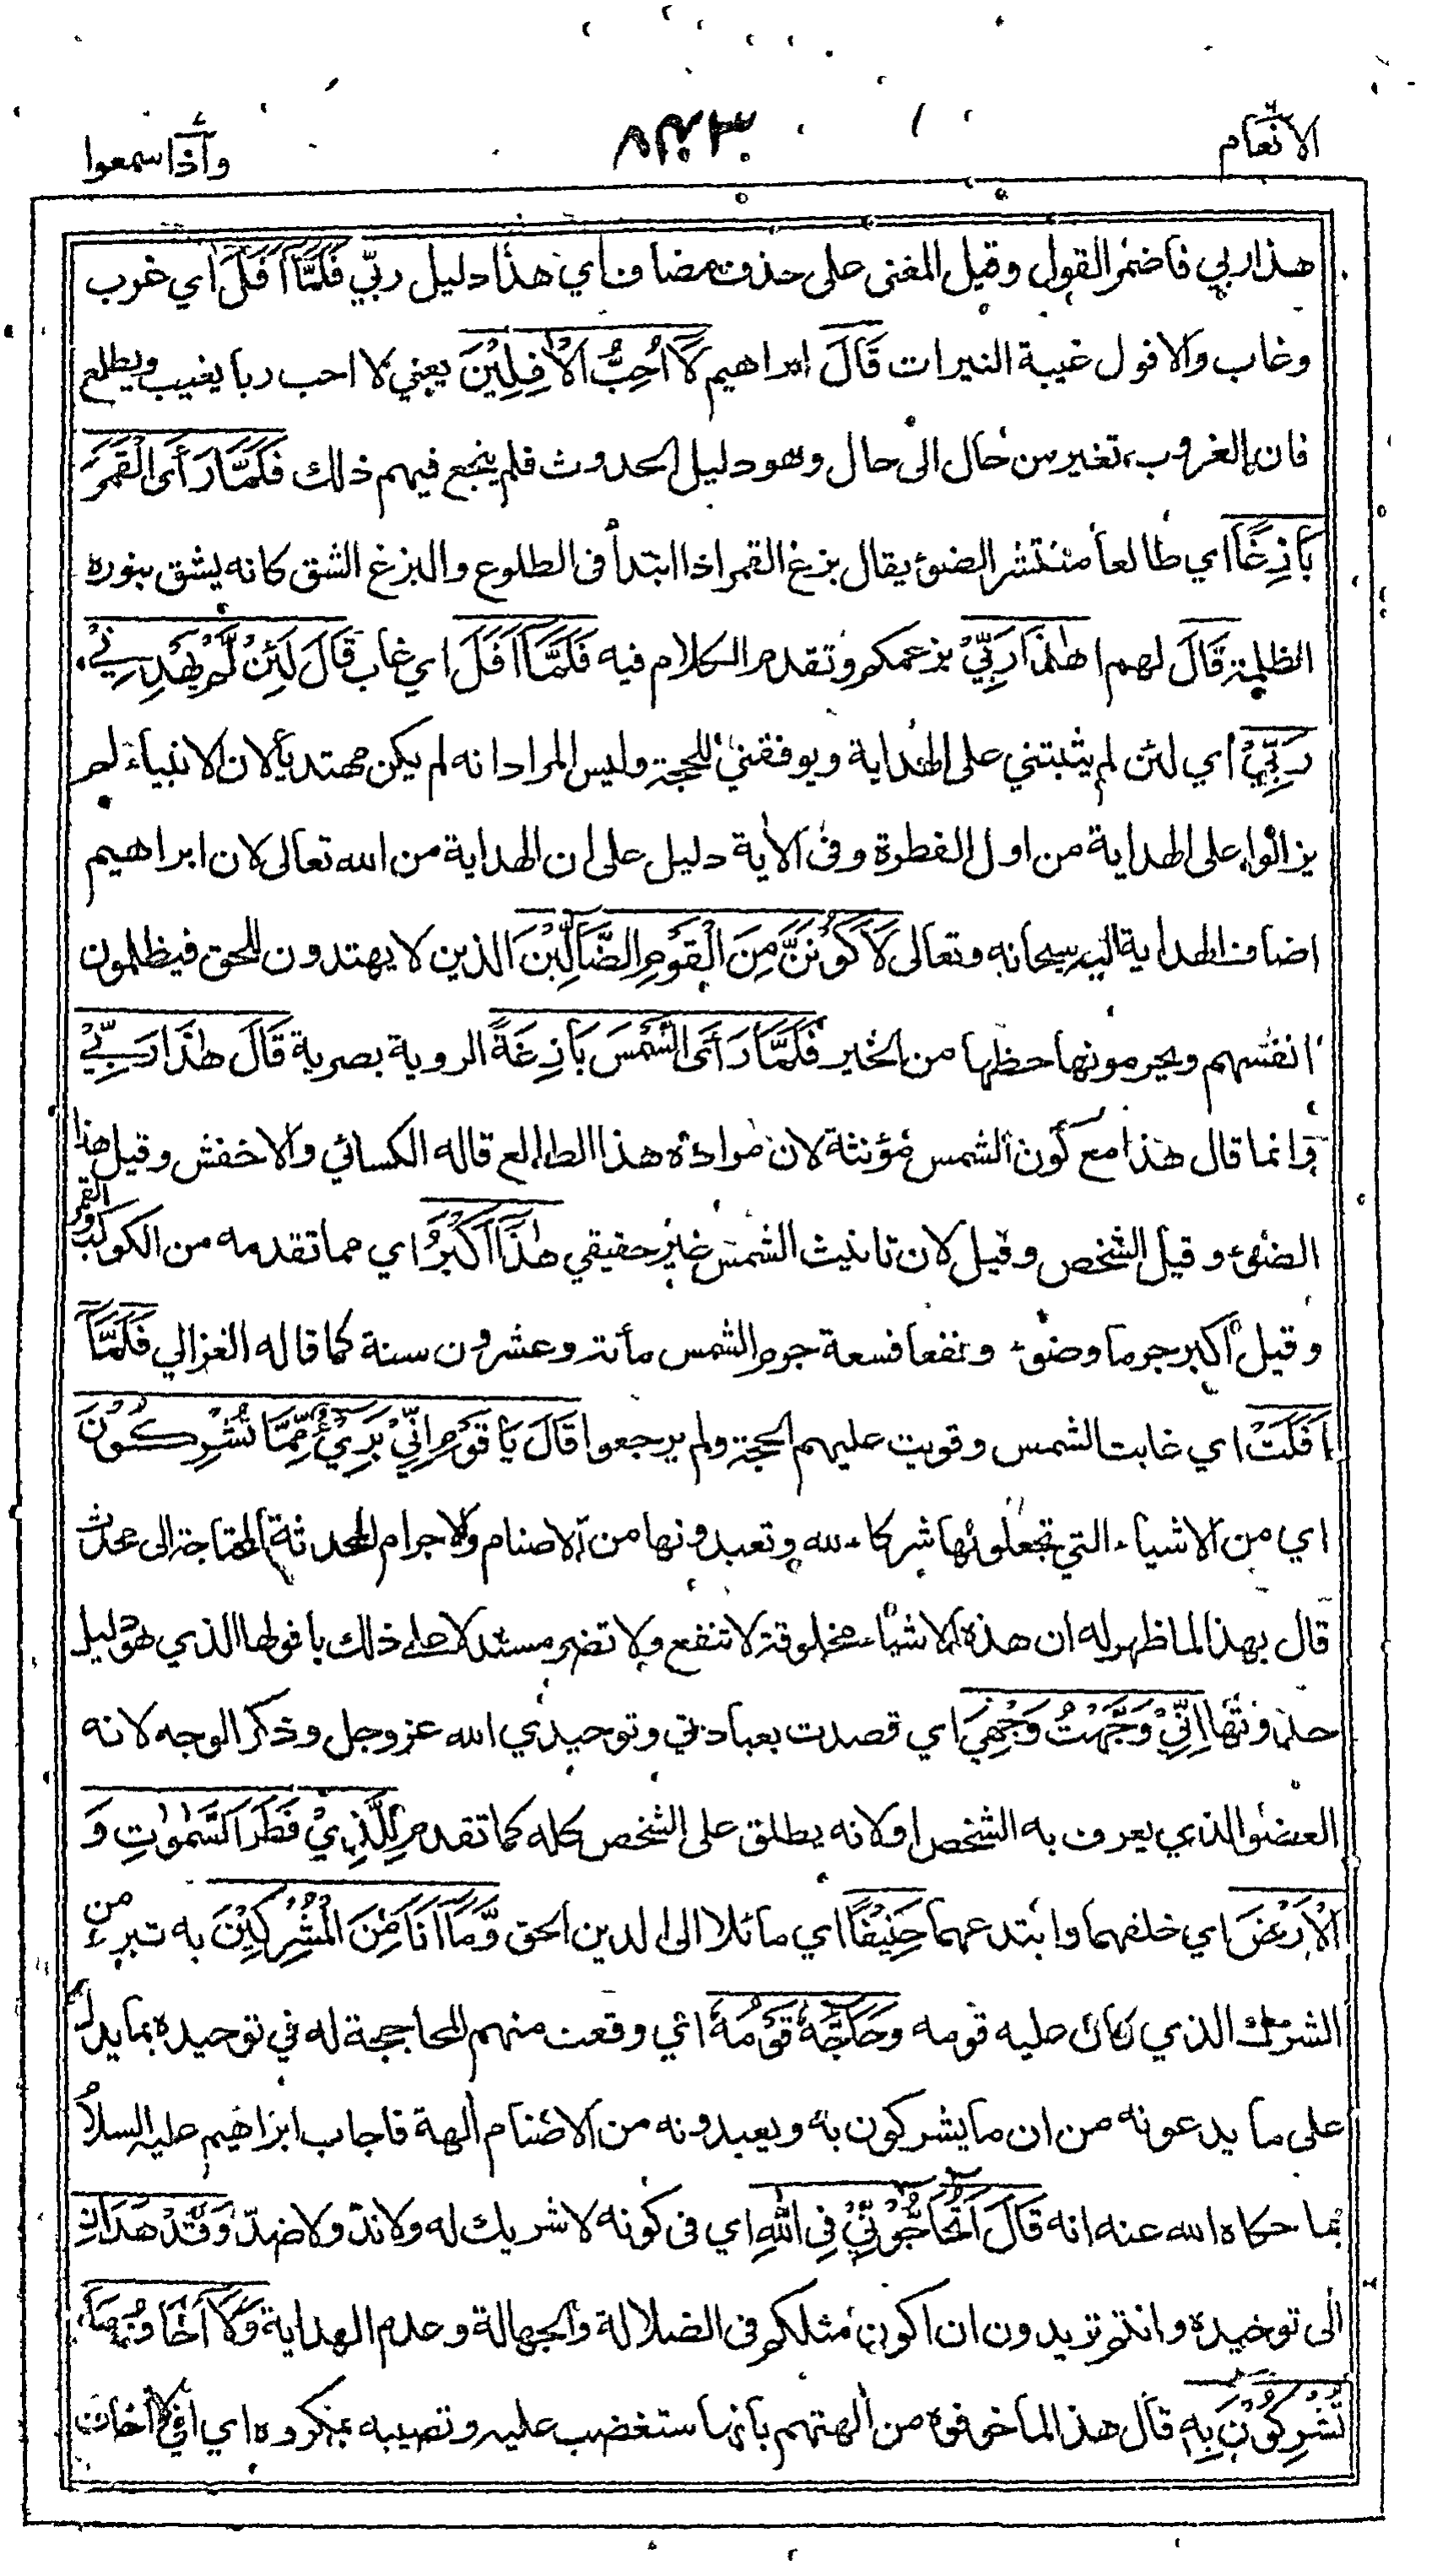 الانعام
٨٤٣
واذا سمعوا
هذا ربي فاضمر القول وقيل المعنى على حذف مضاف اي هذا دليل ربّي فَلَمَّآ اَفَلَ اي غرب
وغاب والافول غيبة النيرات قَالَ ابراهيم لَآ اُحِبُّ الْاٰفِلِيْنَ يعني لا احب ربا يغيب ويطلع
فان الغروب تغير من حال الى حال وهو دليل الحدوث فلم ينجع فيهم ذلك فَلَمَّا رَأَى الْقَمَرَ
بَازِغًا اي طالعا منتشر الضوء يقال بزغ القمر اذا ابتدأ فى الطلوع والبزغ الشق كانه يشق بنوره
الظلمة قَالَ لهم هٰذَا رَبِّيْ بزعمكم وتقدم الكلام فيه فَلَمَّآ اَفَلَ اي غاب قَالَ لَئِنْ لَّمْ يَهْدِنِيْ
رَبِّيْ اي لئن لم يثبتني على الهداية ويوفقني للحجة وليس المراد انه لم يكن مهتديا لان الانبياء لم
يزالوا على الهداية من اول الفطرة وفى الآية دليل على ان الهداية من الله تعالى لان ابراهيم
اضاف الهداية اليه سبحانه وتعالى لَاَكُوْنَنَّ مِنَ الْقَوْمِ الضَّآلِّيْنَ الذين لا يهتدون للحق فيظلمون
انفسهم ويحرمونها حظها من الخير فَلَمَّا رَأَى الشَّمْسَ بَازِغَةً الروية بصرية قَالَ هٰذَا رَبِّيْ
وانما قال هذا مع كون الشمس مؤنثة لان مراده هذا الطالع قاله الكسائي والاخفش وقيل هذا
الضوء وقيل الشخص وقيل لان تانيث الشمس غير حقيقي هٰذَآ اَكْبَرُ اي مما تقدمه من الكوكب والقمر
وقيل اكبر جرما وضوء ونفعا فسعة جرم الشمس مأئة وعشرون سنة كما قاله الغزالي فَلَمَّآ
اَفَلَتْ اي غابت الشمس وقويت عليهم الحجة ولم يرجعوا قَالَ يَا قَوْمِ اِنِّيْ بَرِيْءٌ مِّمَّا تُشْرِكُوْنَ
اي من الاشياء التي تجعلونها شركاء لله وتعبدونها من الاصنام والاجرام المحدثة المحتاجة الى محدث
قال بهذا لما ظهر له ان هذه الاشياء مخلوقة لا تنفع ولا تضر مستدلا على ذلك بافولها الذي هو دليل
حدوثها اِنِّيْ وَجَّهْتُ وَجْهِيَ اي قصدت بعبادتي وتوحيدي الله عز وجل وذكر الوجه لانه
العضو الذي يعرف به الشخص او لانه يطلق على الشخص كله كما تقدم لِلَّذِيْ فَطَرَ السَّمٰوٰتِ وَ
الْاَرْضَ اي خلقهما وابتدعهما حَنِيْفًا اي مائلا الى الدين الحق وَّمَآ اَنَا مِنَ الْمُشْرِكِيْنَ به تبرء من
الشرك الذي كان عليه قومه وَحَآجَّهٗ قَوْمُهٗ اي وقعت منهم المحاججة له في توحيده بما يدل
على ما يدعونه من ان ما يشركون به ويعبدونه من الاصنام آلهة فاجاب ابراهيم عليه السلام
بما حكاه الله عنه انه قَالَ اَتُحَآجُّوْنِّيْ فِي اللّٰهِ اي فى كونه لا شريك له ولا ندّ ولا ضدّ وَقَدْ هَدَانِ
الى توحيده وانتم تريدون ان اكون مثلكم فى الضلالة والجهالة وعدم الهداية وَلَآ اَخَافُ مَا
تُشْرِكُوْنَ بِهٖ قال هذا لما خوفوه من آلهتهم بأنها ستغضب عليه وتصيبه بمكروه اي اني لا اخاف